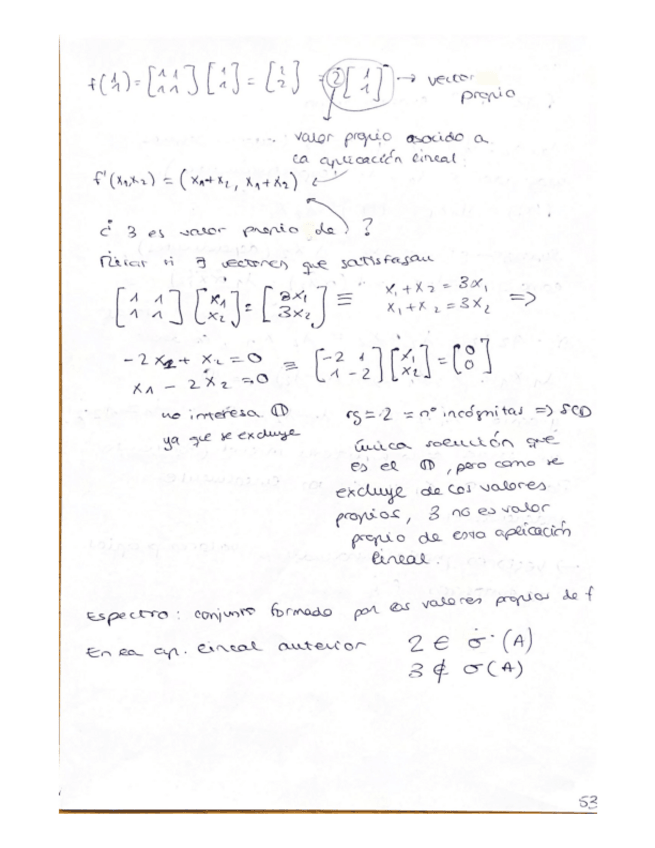 f(1 1) = [1 1 1 1] [1 1] = [2 2] = 2 [1 1] → vector propio
valor propio asociado a
la aplicación lineal
f'(x₁,x₂) = (x₁+x₂, x₁+x₂)
¿ 3 es valor propio de ?
Mirar si ∃ vectores que satisfagan
[1 1 1 1] [x₁ x₂] = [3x₁ 3x₂] ≡ x₁+x₂ = 3x₁ x₁+x₂ = 3x₂ =>
-2x₁ + x₂ = 0 x₁ - 2x₂ = 0 ≡ [-2 1 1 -2] [x₁ x₂] = [0 0]
no interesa
ya que se excluye
rg = 2 = nº incógnitas => SCD
única solución que
es el , pero como se
excluye de los valores
propios, 3 no es valor
propio de esta aplicación
lineal.
Espectro: conjunto formado por los valores propios de f
En la ap. lineal anterior 2 ∈ σ(A)
3 ∉ σ(A)
53